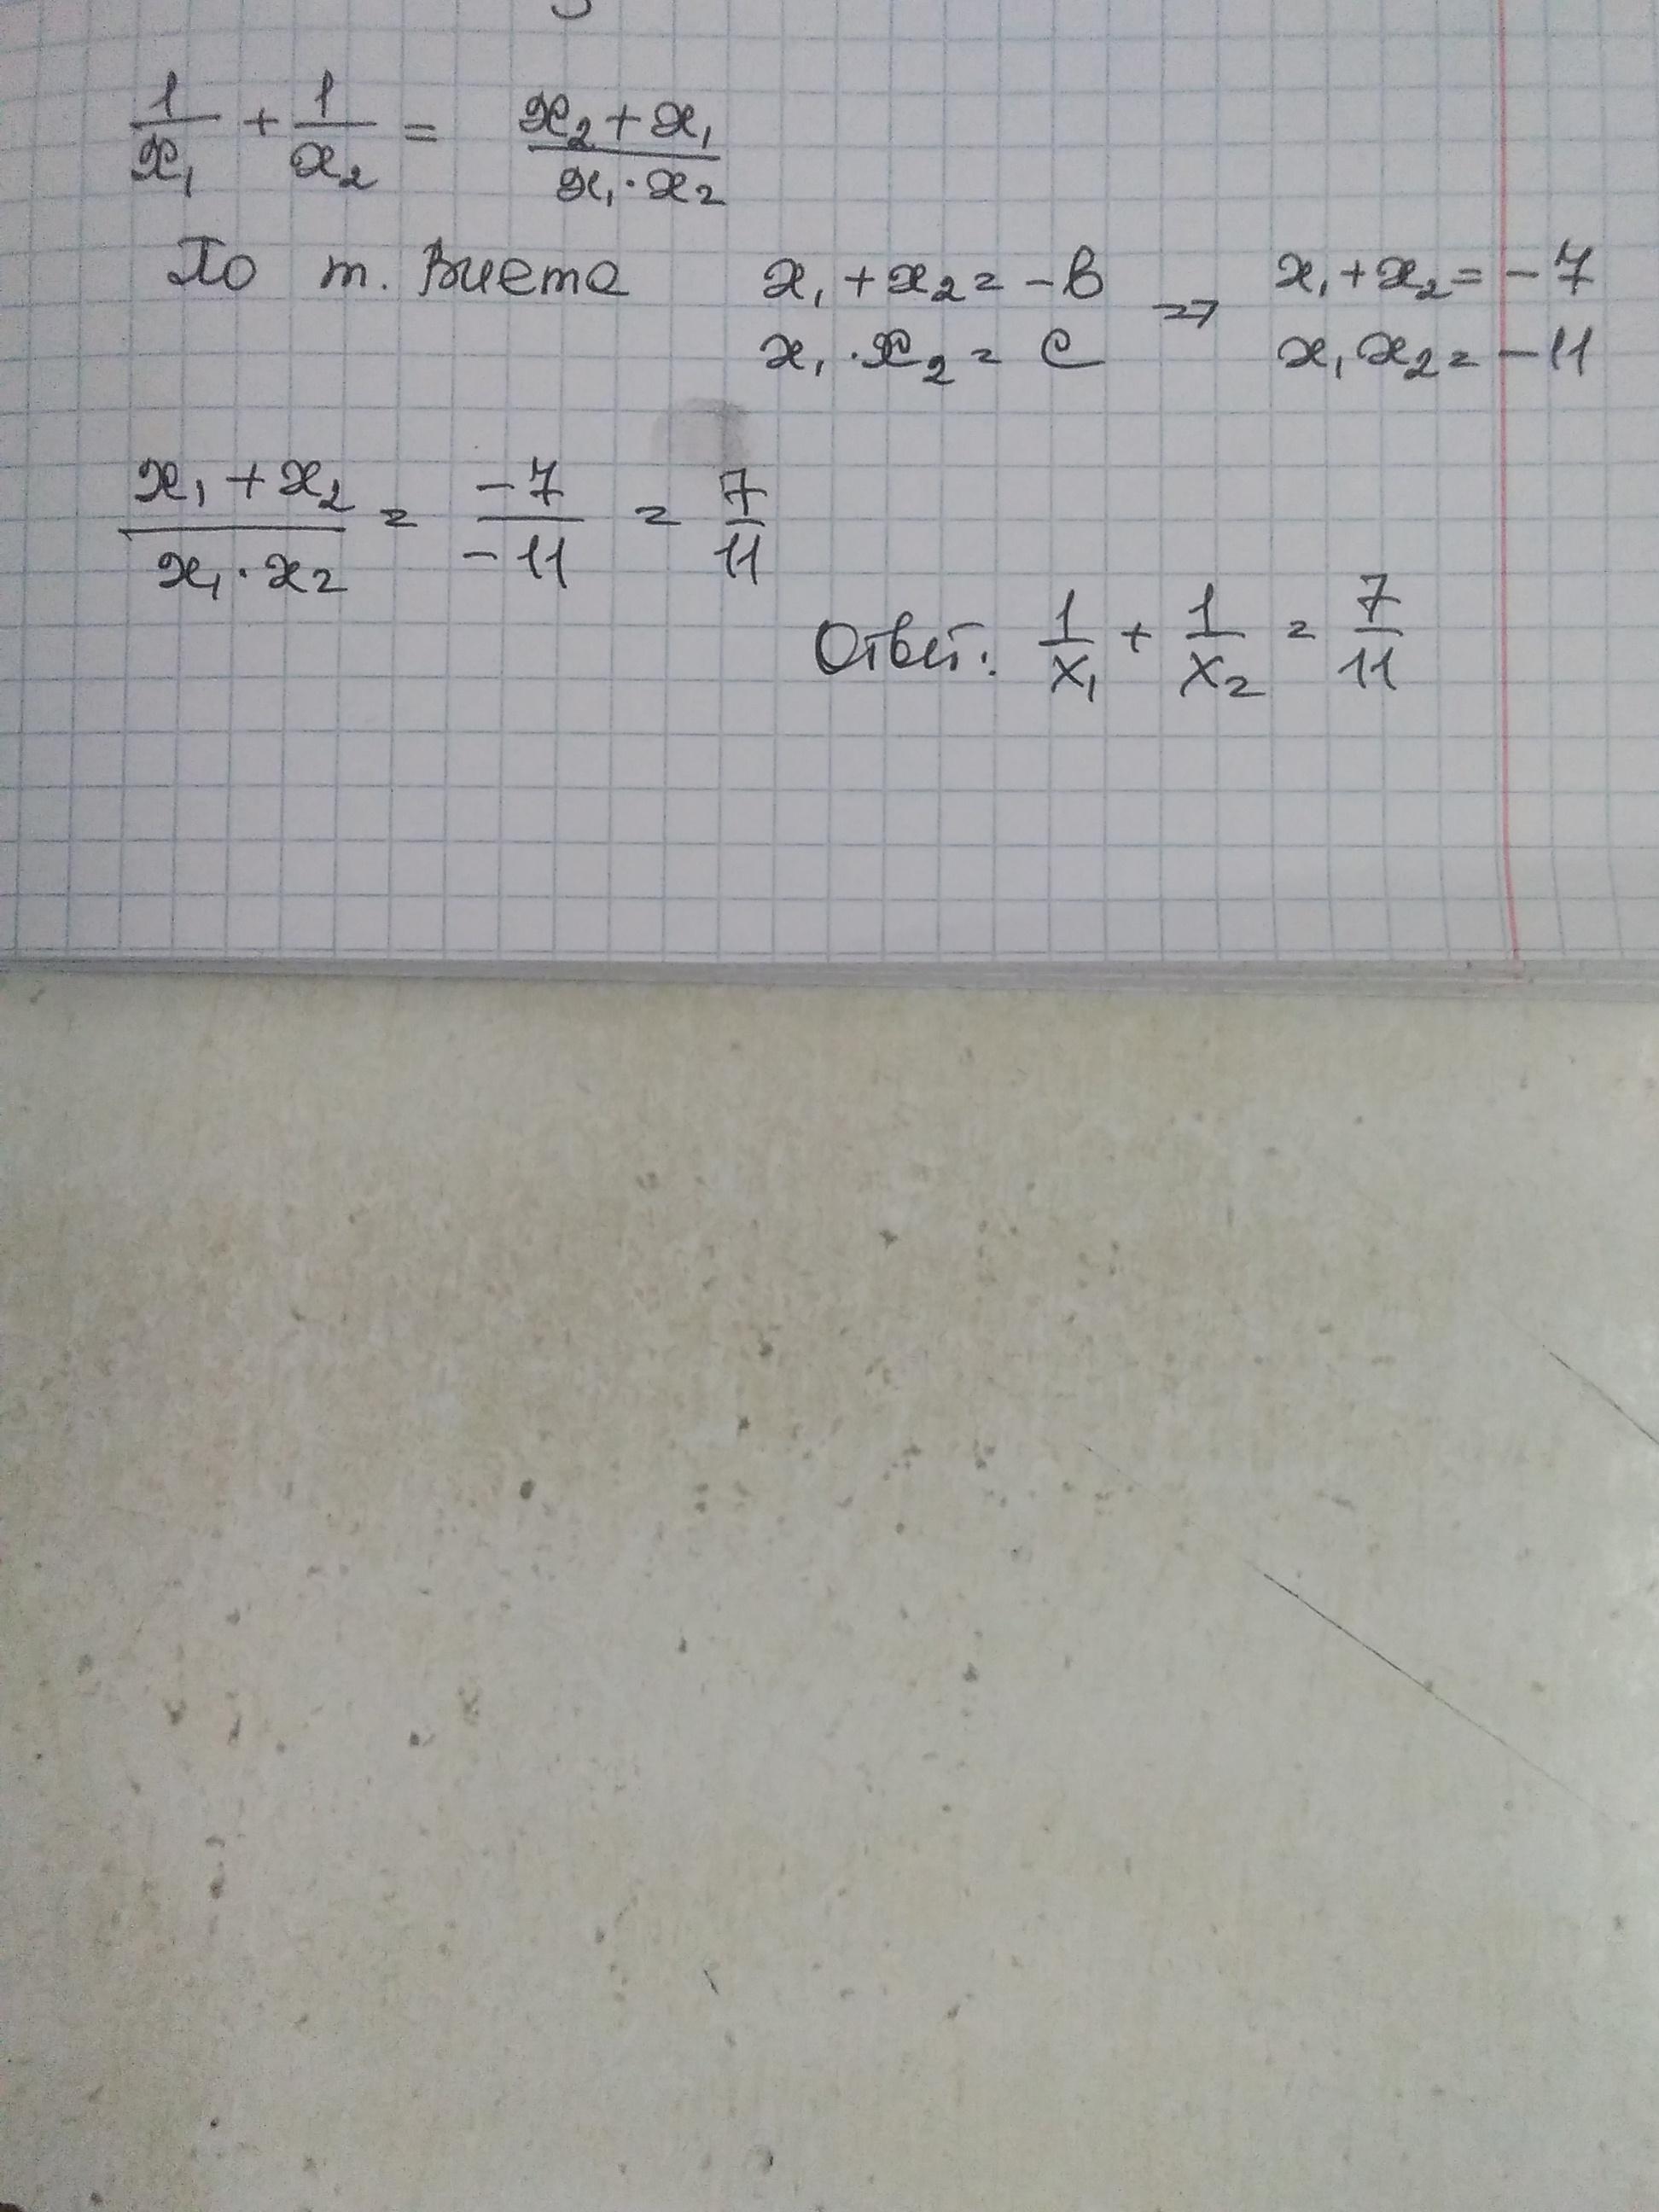 1/x₁ + 1/x₂ = (x₂ + x₁)/(x₁ · x₂)
По т. Виета x₁ + x₂ = -в => x₁ + x₂ = -7
x₁ · x₂ = с x₁ x₂ = -11
(x₁ + x₂)/(x₁ · x₂) = -7/-11 = 7/11
Ответ: 1/x₁ + 1/x₂ = 7/11